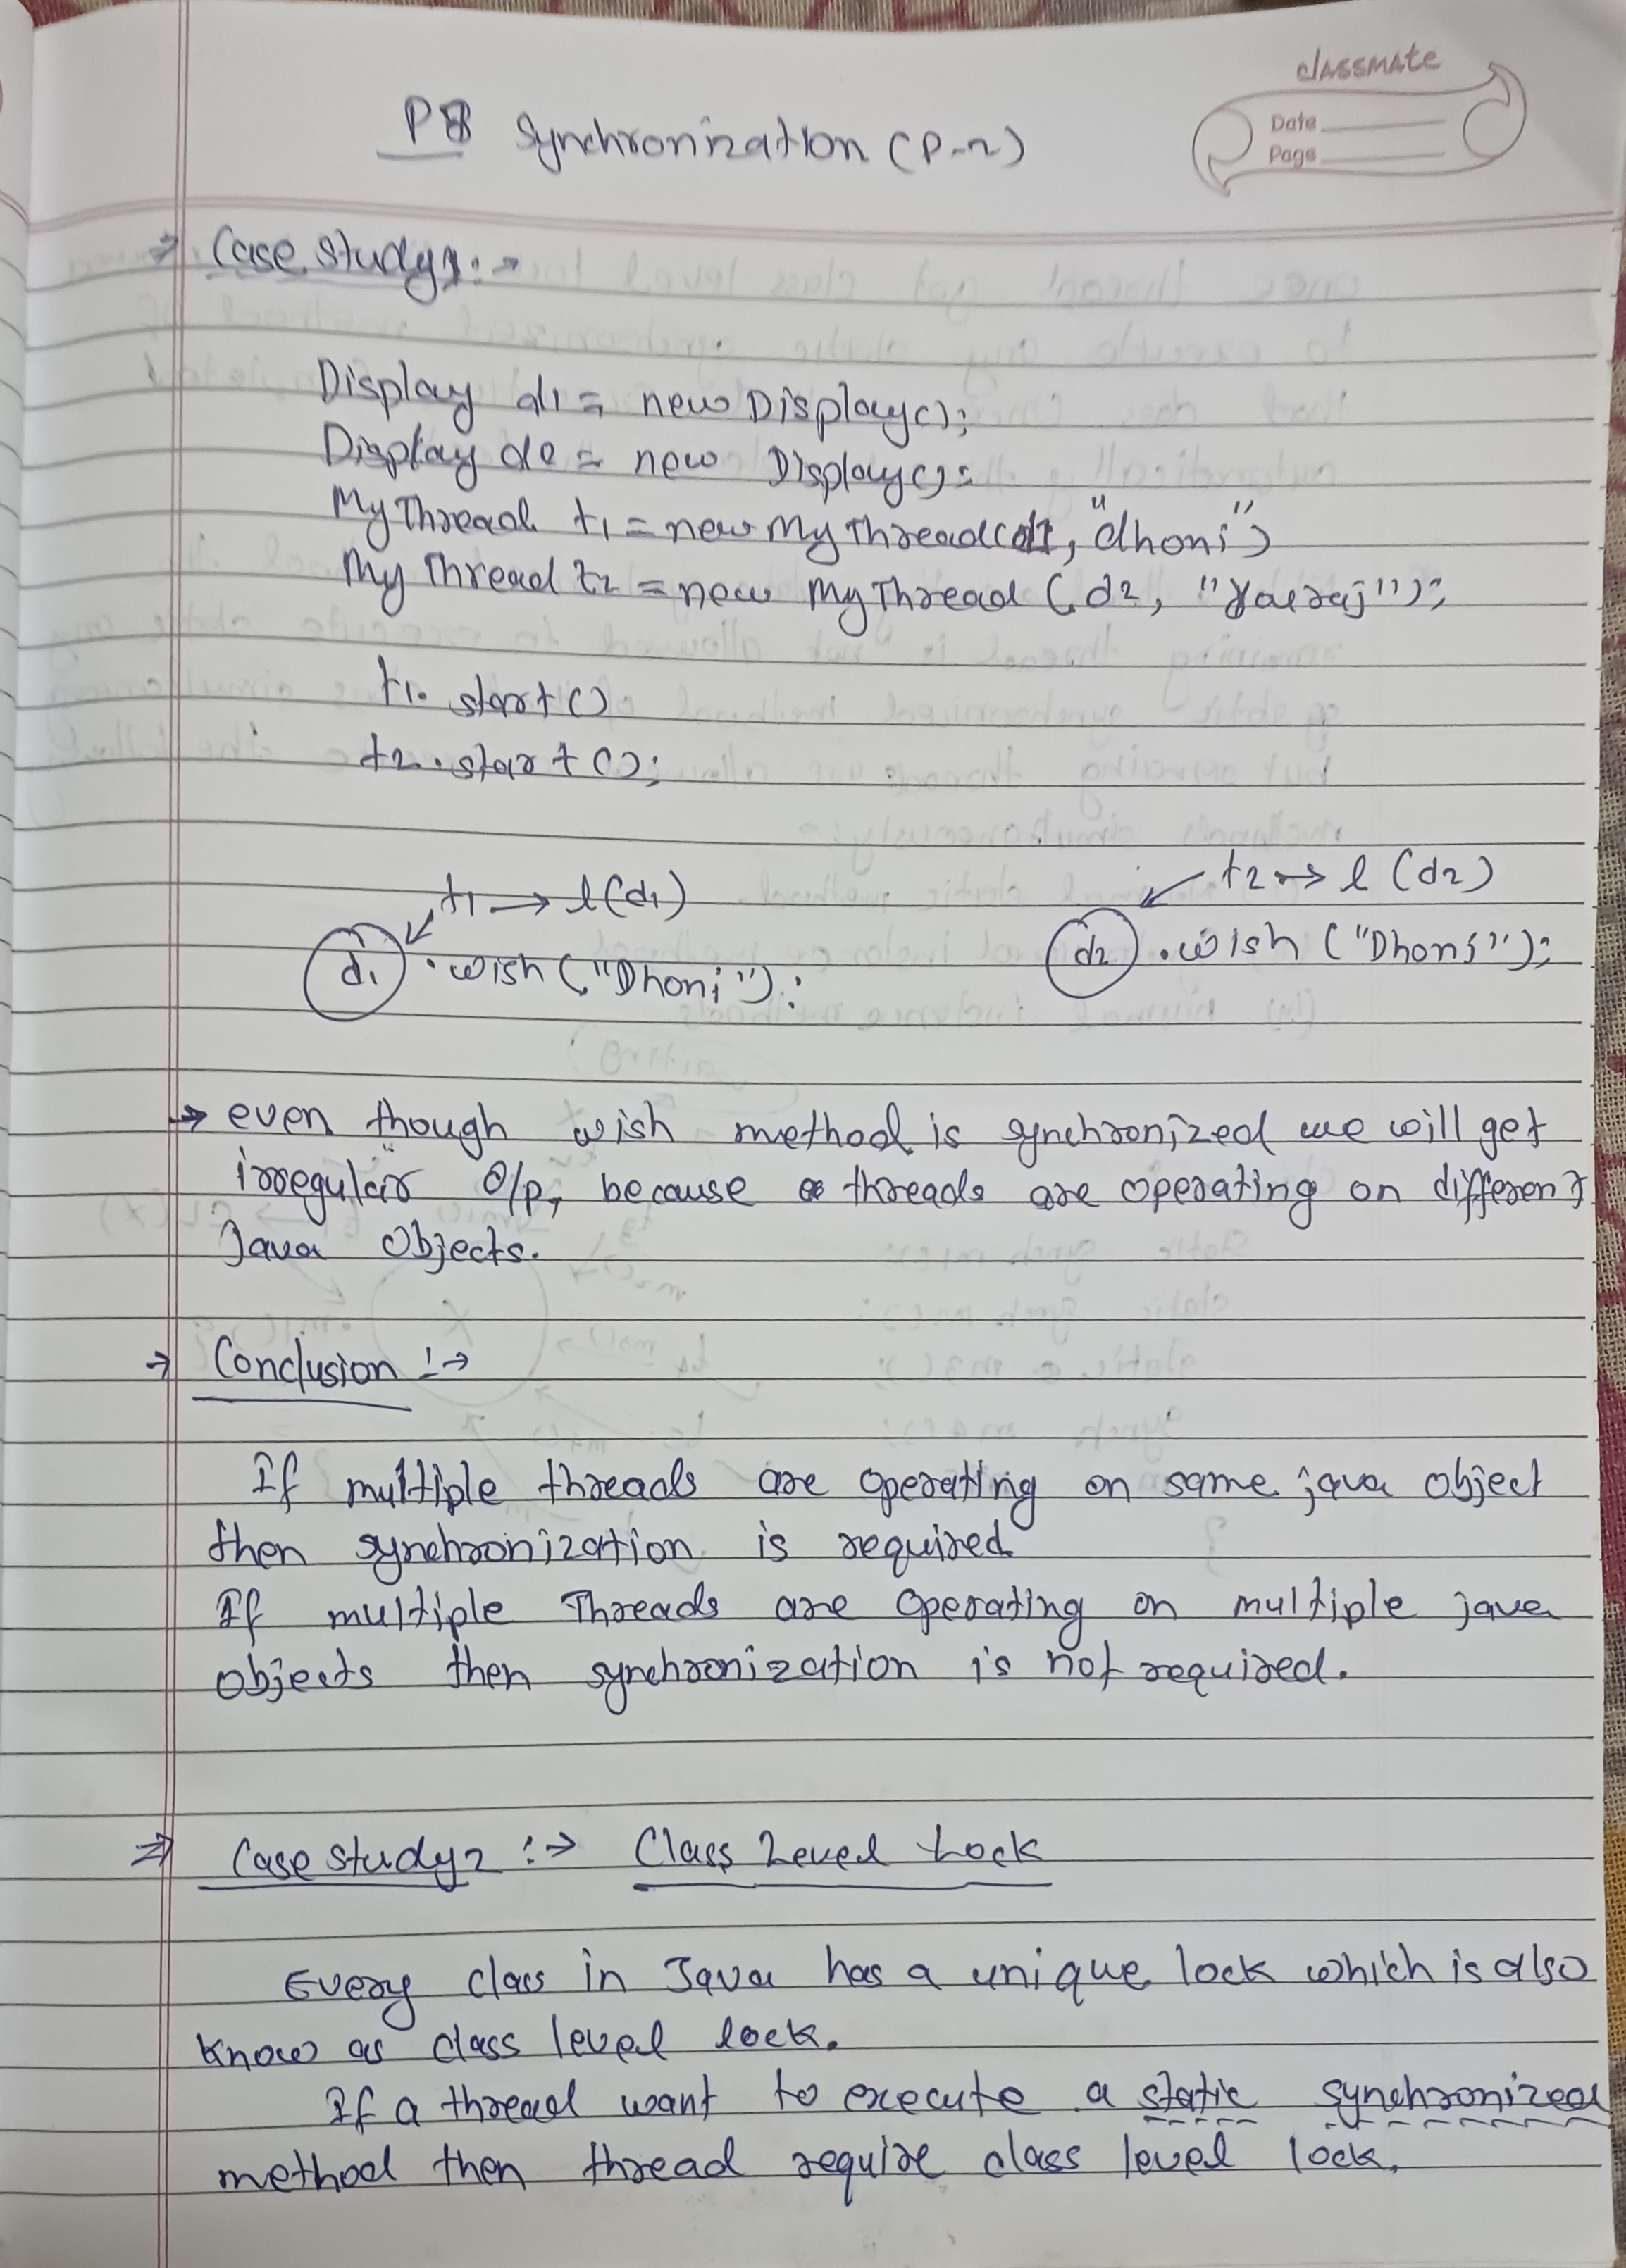 classmate
Date
Page
P8 Synchronization (P-2)
⇒ Case Study1:→
Display d1 = new Display();
Display d2 = new Display();
MyThread t1 = new MyThread(d1, "dhoni")
MyThread t2 = new MyThread (d2, "Yuvraj");
t1. start()
t2. start();
t1 → l(d1)
t2 → l (d2)
d1 .wish ("Dhoni");
d2 .wish ("Dhoni");
→ even though wish method is synchronized we will get
irregular O/p, because threads are operating on different
Java Objects.
→ Conclusion :→
If multiple threads are operating on same java object
then synchronization is required
If multiple Threads are operating on multiple java
objects then synchronization is not required.
⇒ Case study2 :→ Class Level Lock
Every class in Java has a unique lock which is also
know as class level lock.
If a thread want to execute a static synchronized
method then thread require class level lock.